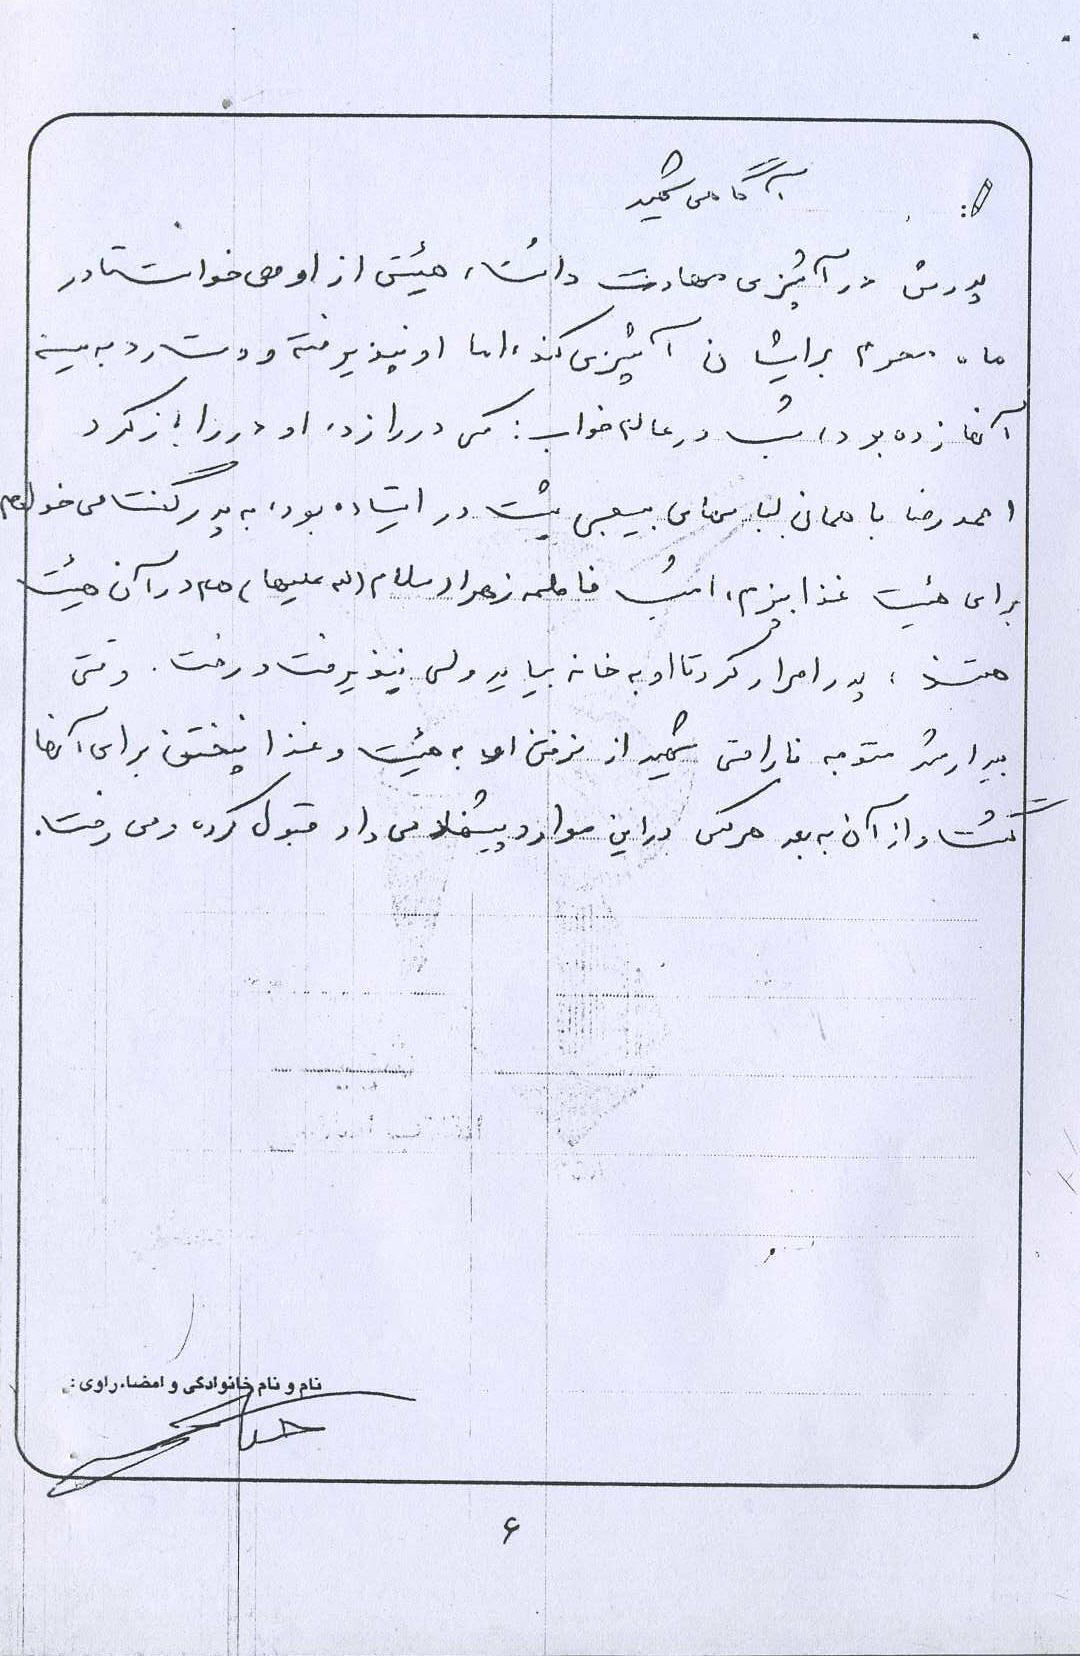 آگاهی شهید
پدرش در آشپزی مهارت داشت، هیئتی از او می‌خواست تا در
ماه محرم برایشان آشپزی کند، اما او نپذیرفته و دست رد به سینه
آنها زده بود، شب در عالم خواب: کسی در را زد، او در را باز کرد
احمدرضا با همان لباس‌های بسیجی پشت در ایستاده بود، به پدر گفت می‌خواهم
برای هیئت غذا بپزم، امشب فاطمه زهرا (سلام الله علیها) هم در آن هیئت
هستند، پدر اصرار کرد تا او به خانه بیاید ولی نپذیرفت و رفت. وقتی
بیدار شد متوجه ناراحتی شهید از نرفتن او به هیئت و غذا نپختن برای آنها
گشت و از آن به بعد هر کس در این موارد پیشنهاد می داد قبول کرده و می رفت.
نام و نام خانوادگی و امضاء راوی:
۶